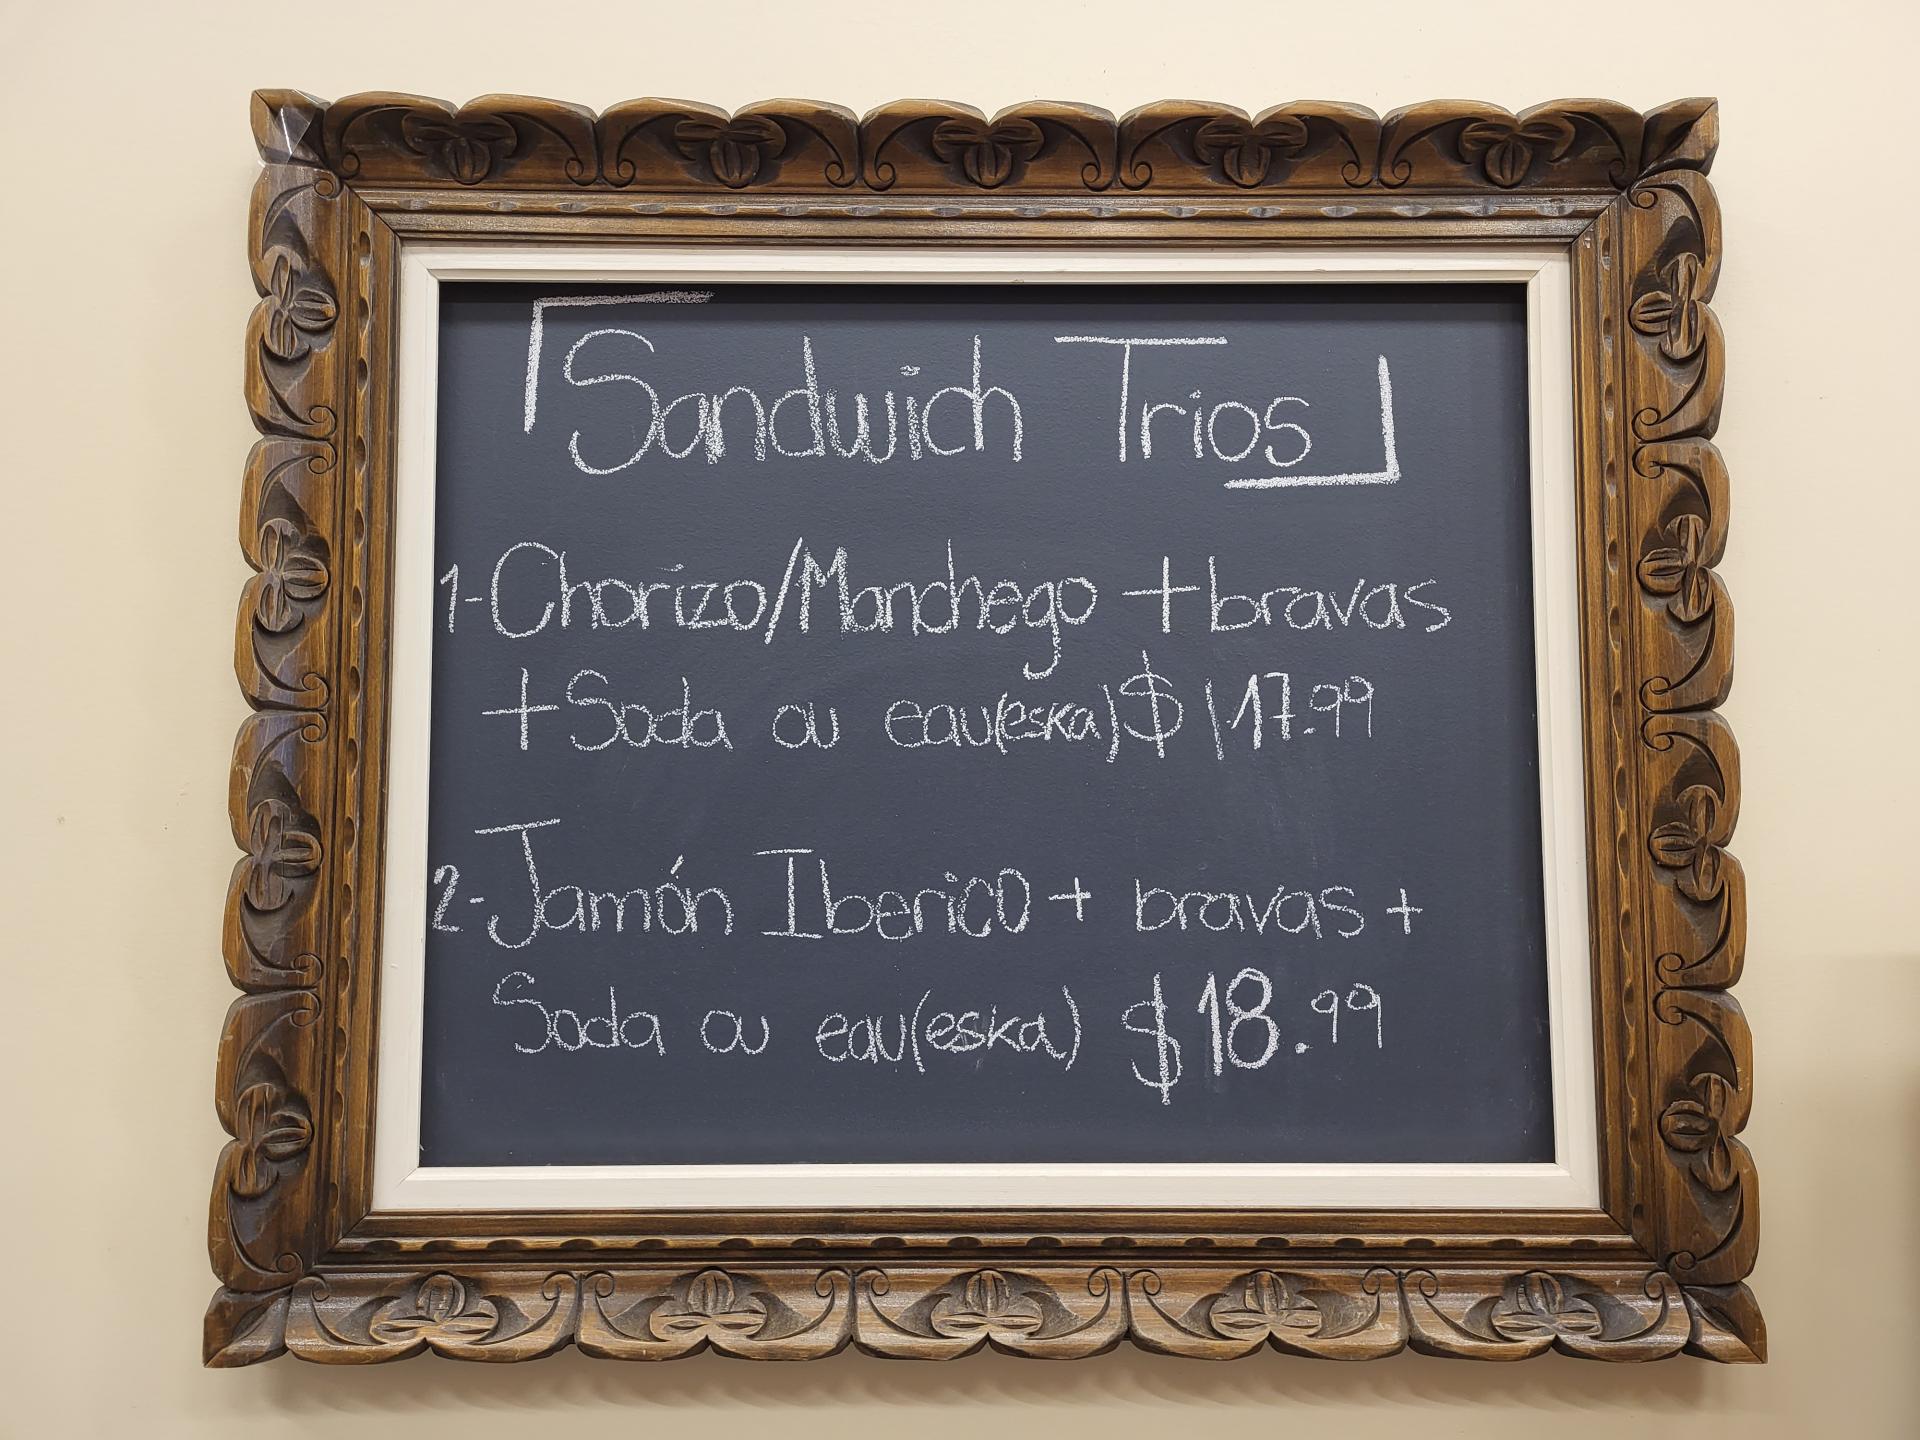 Sandwich Trios
1-Chorizo/Manchego + bravas
+ Soda ou eau(eska) $ 17.99
2-Jamón Iberico + bravas +
Soda ou eau(eska) $18.99